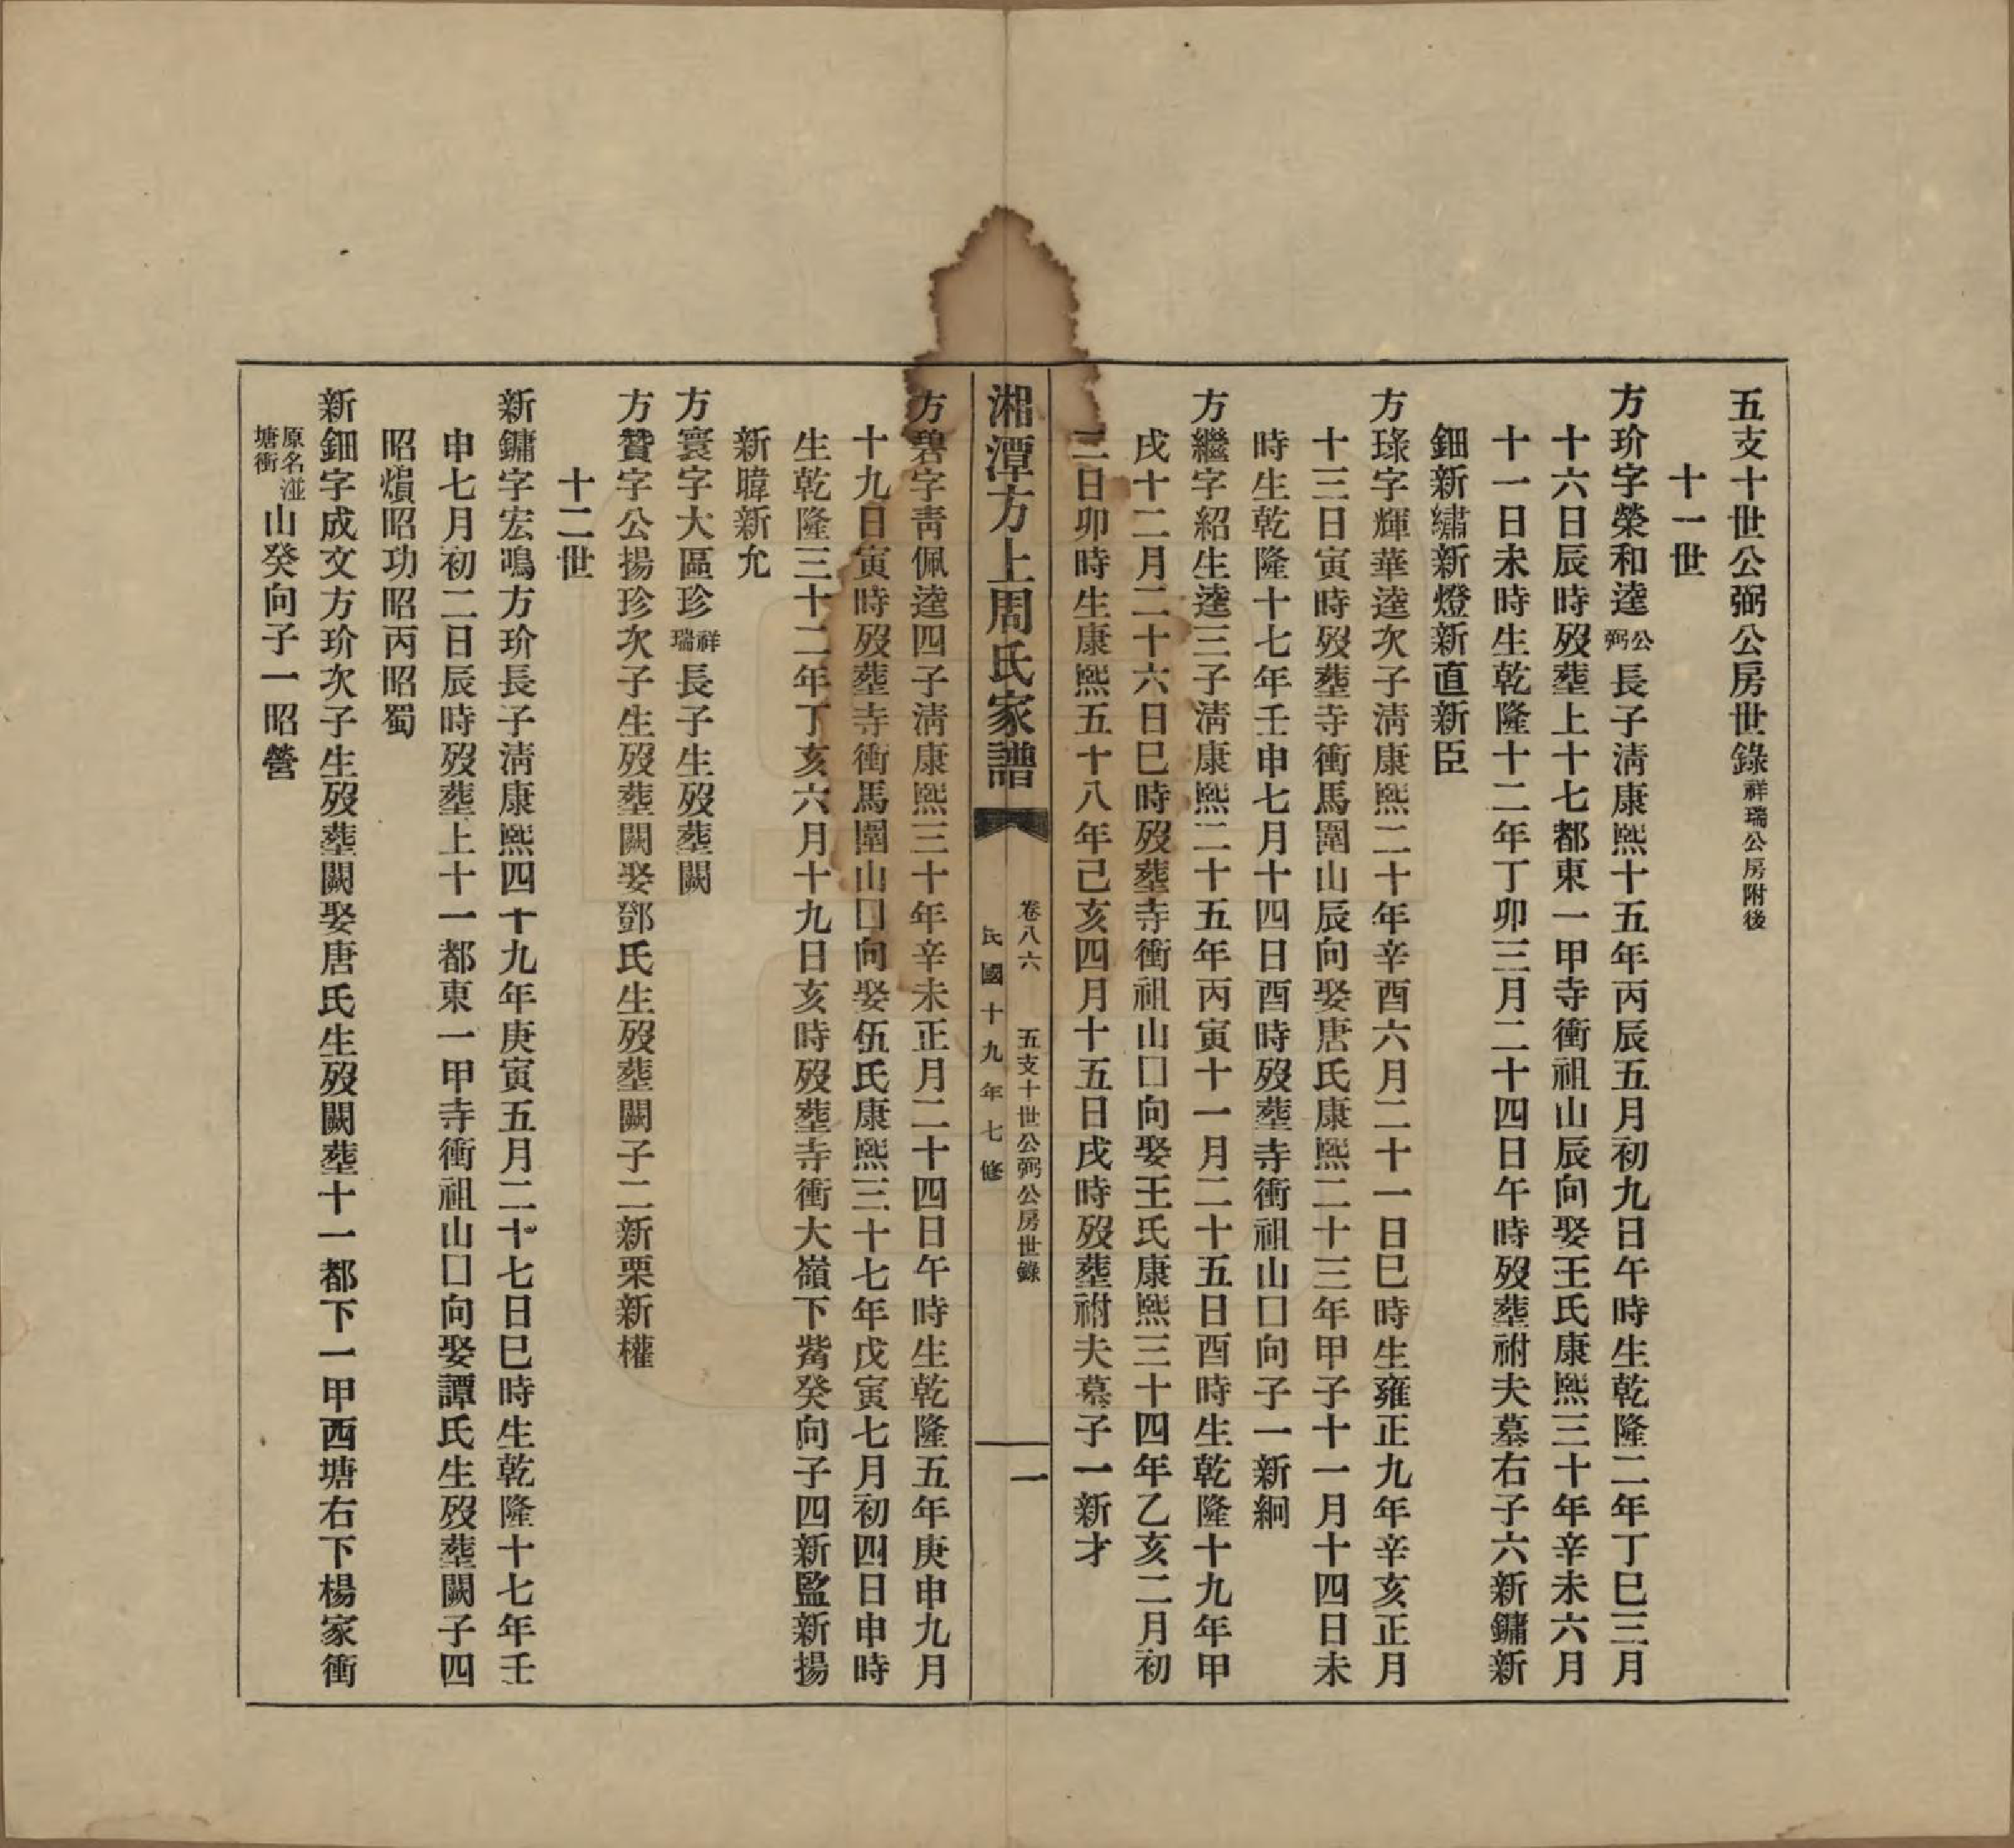 五支十世公弼公房世錄祥瑞公房附後
十一世
方玠字榮和逵公弼長子淸康熙十五年丙辰五月初九日午時生乾隆二年丁巳三月
十六日辰時歿葬上十七都東一甲寺衝祖山辰向娶王氏康熙三十年辛未六月
十一日未時生乾隆十二年丁卯三月二十四日午時歿葬祔夫墓右子六新鏞新
鈿新繡新燈新直新臣
方琭字輝華逵次子淸康熙二十年辛酉六月二十一日巳時生雍正九年辛亥正月
十三日寅時歿葬寺衝馬圍山辰向娶唐氏康熙二十三年甲子十一月十四日未
時生乾隆十七年壬申七月十四日酉時歿葬寺衝祖山囗向子一新絅
方繼字紹生逵三子淸康熙二十五年丙寅十一月二十五日酉時生乾隆十九年甲
戌十二月二十六日巳時歿葬寺衝祖山囗向娶王氏康熙三十四年乙亥二月初
三日卯時生康熙五十八年己亥四月十五日戌時歿葬祔夫墓子一新才
湘潭方上周氏家譜
卷八六 五支十世公弼公房世錄
民國十九年七修
一
方碧字靑佩逵四子淸康熙三十年辛未正月二十四日午時生乾隆五年庚申九月
十九日寅時歿葬寺衝馬圍山囗向娶伍氏康熙三十七年戊寅七月初四日申時
生乾隆三十二年丁亥六月十九日亥時歿葬寺衝大嶺下觜癸向子四新監新揚
新暐新允
方寰字大區珍祥瑞長子生歿葬闕
方贊字公揚珍次子生歿葬闕娶鄧氏生歿葬闕子二新栗新權
十二世
新鏞字宏鳴方玠長子淸康熙四十九年庚寅五月二十七日巳時生乾隆十七年壬
申七月初二日辰時歿葬上十一都東一甲寺衝祖山囗向娶譚氏生歿葬闕子四
昭熉昭功昭丙昭蜀
新鈿字成文方玠次子生歿葬闕娶唐氏生歿闕葬十一都下一甲西塘右下楊家衝
原名湴塘衝山癸向子一昭營